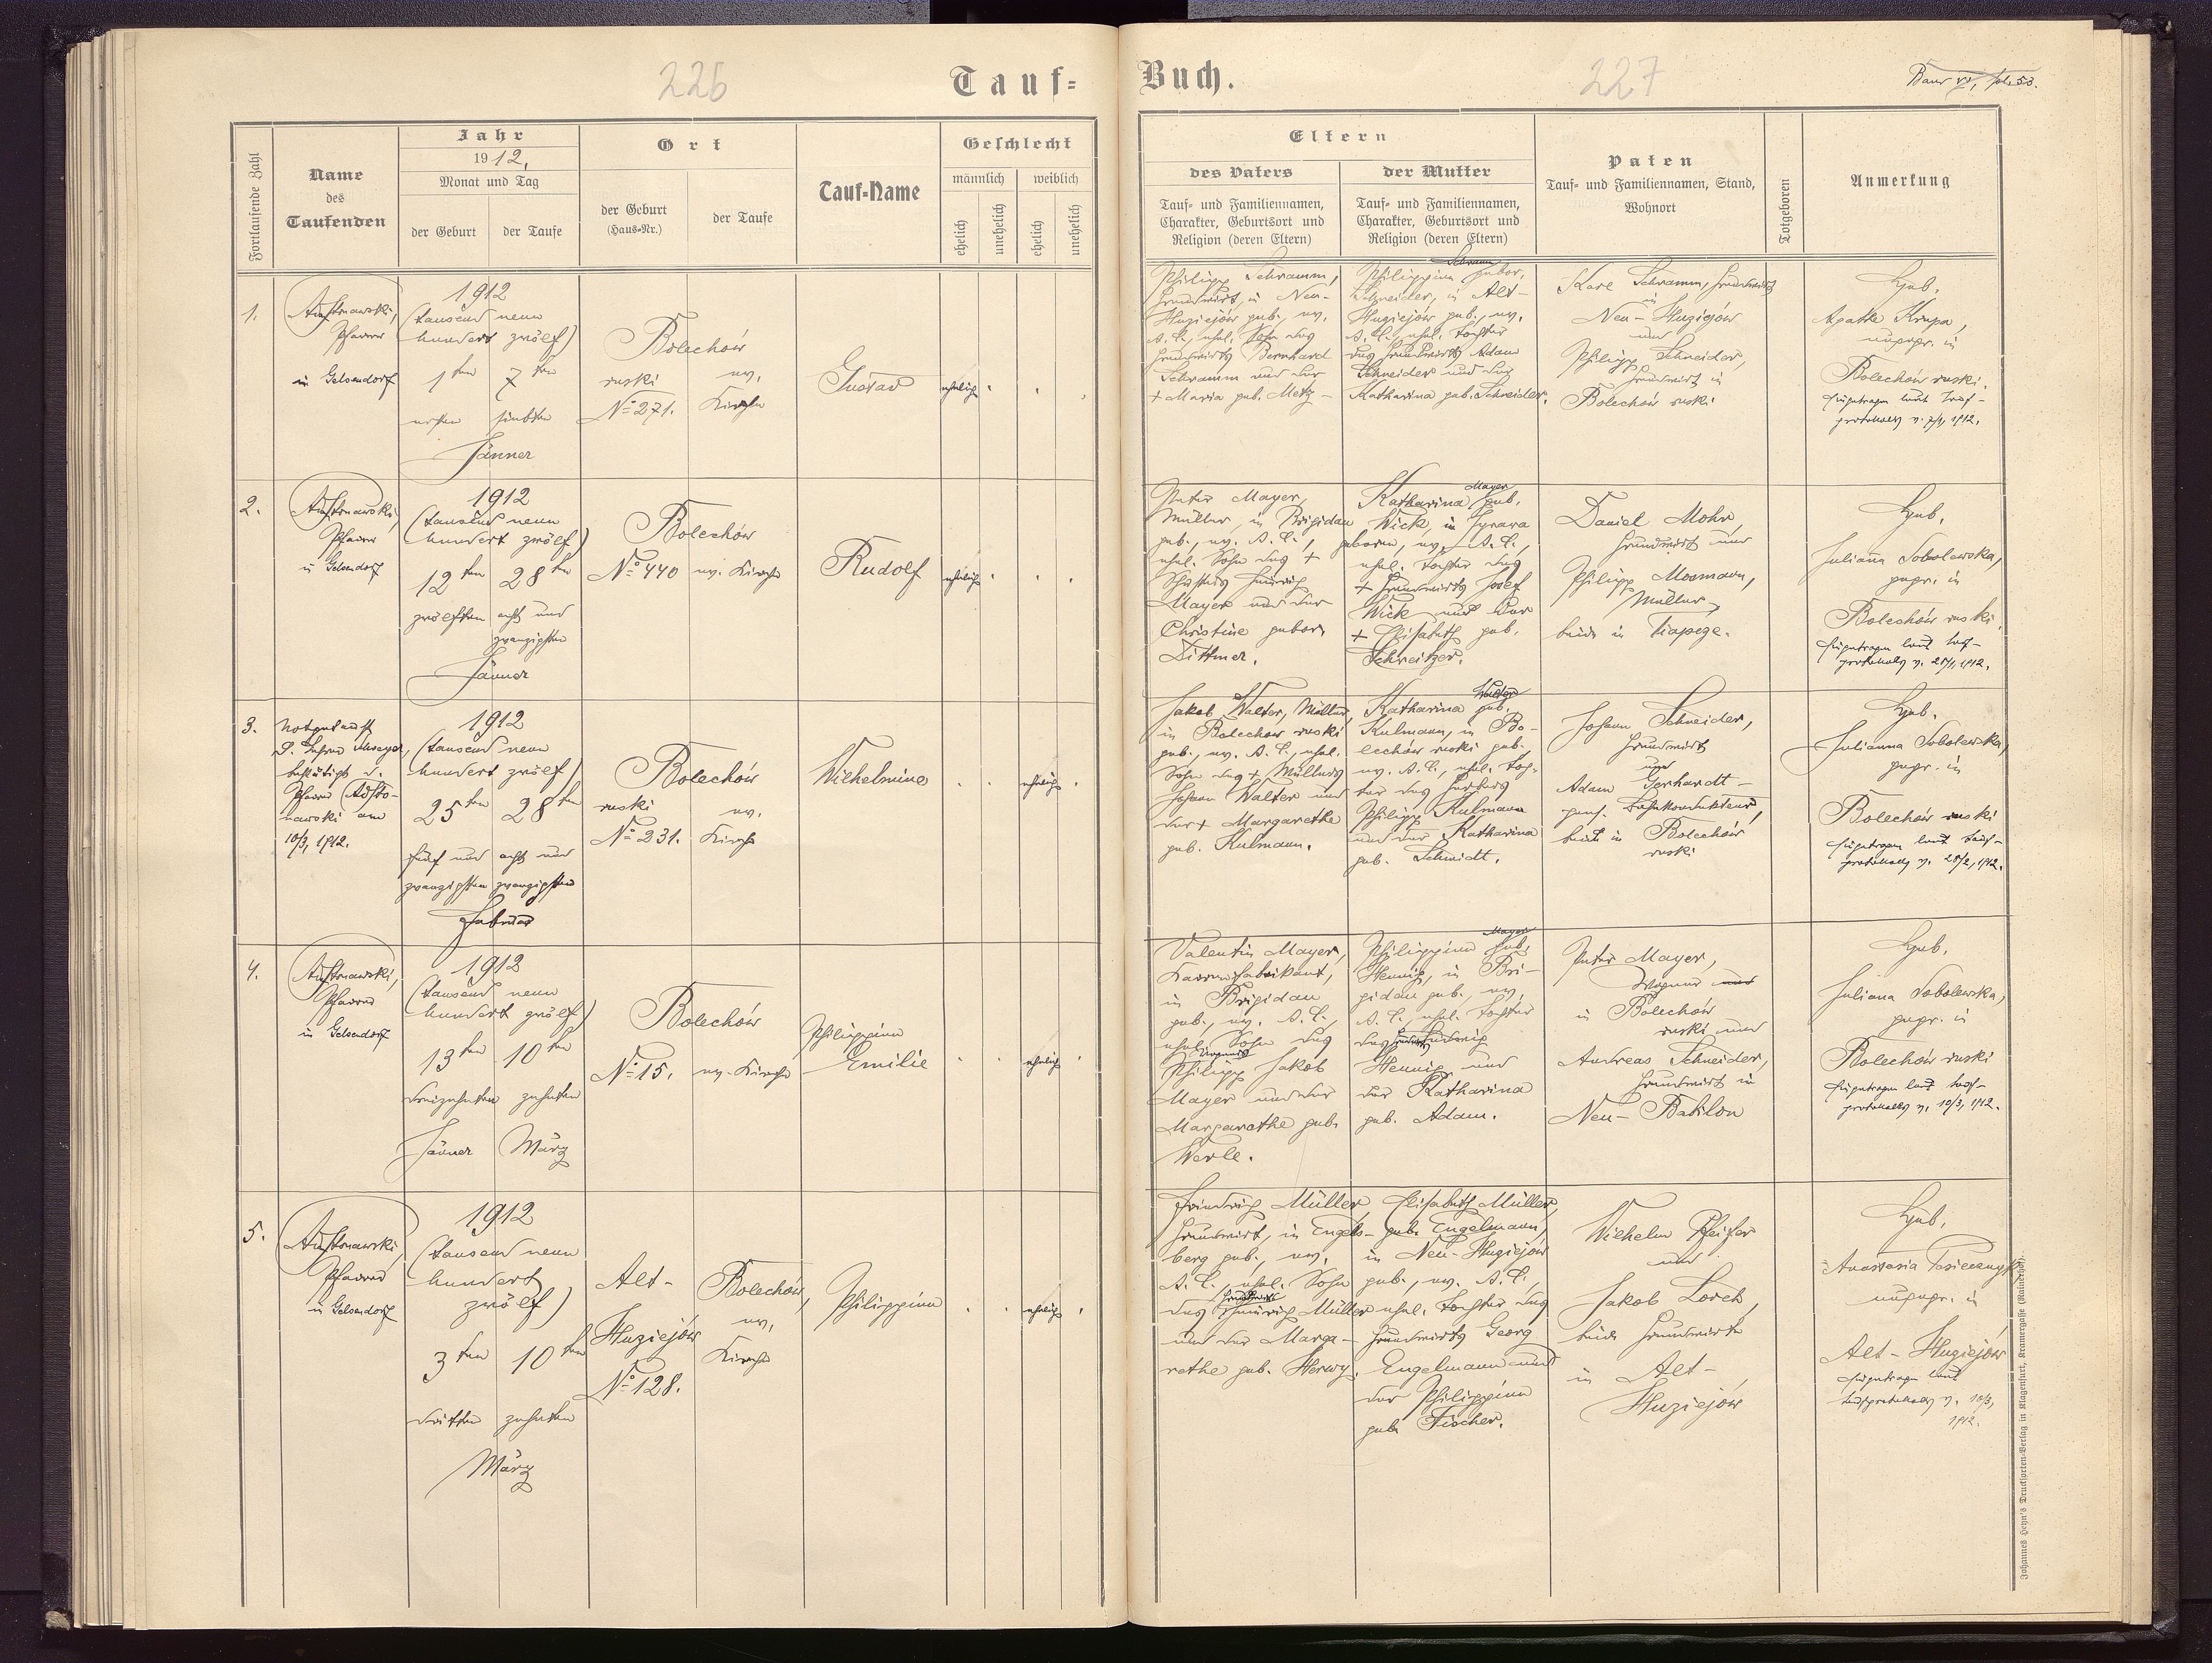 226
Tauf=
Buch.
227
Band VI, fol. 53.
Fortlaufende Zahl
Name
des
Taufenden
Jahr
1912.
Monat und Tag
der Geburt
der Taufe
Ort
der Geburt
(Haus=Nr.)
der Taufe
Tauf=Name
Geschlecht
männlich
weiblich
ehelich
unehelich
ehelich
unehelich
Eltern
des Vaters
Tauf= und Familiennamen,
Charakter, Geburtsort und
Religion (deren Eltern)
der Mutter
Tauf= und Familiennamen,
Charakter, Geburtsort und
Religion (deren Eltern)
Paten
Tauf= und Familiennamen, Stand,
Wohnort
Totgeboren
Anmerkung
1.
Pfarrer
in Gelsendorf
1912
(tausend neun
hundert zwölf)
1ten
7ten
ersten
siebten
Jänner
Bolechów
ruski
No 271.
ev.
Kirche
Gustav
ehelich
Philipp Schramm,
Grundwirt, in Neu-
Huziejów geb., ev.
A. C., ehel. Sohn des
Grundwirts Bernhard
Schramm und der
+ Maria geb. Metz -
Schramm
Philippine gebor.
Schneider, in Alt-
Huziejów geb., ev.
A. C., ehel. Tochter
des Grundwirts Adam
Schneider und der
Katharina geb. Schneider.
Karl Schramm, Grundwirt
in
Neu-Huziejów
und
Philipp Schneider,
Grundwirt in
Bolechów ruski
Heb.
Agathe Krupa,
ungepr. in
Bolechów ruski.
Eingetragen laut Tauf-
protokolls v. 7/1, 1912.
2.
Pfarrer
in Gelsendorf
1912
(tausend neun
hundert zwölf)
12ten
28ten
zwölften
acht und
zwanzigsten
Jänner
Bolechów
No 440
ev. Kirche
Rudolf
ehelich
Peter Mayer,
Müller, in Brigidau
geb., ev. A. C.,
ehel. Sohn des +
Heinrich
Mayer und der
Christine gebor.
Dittmer.
Mayer
Katharina geb.
Wick, in Synara
geboren, ev. A. C.,
ehel. Tochter des
+ Grundwirts Josef
Wick und der
+ Elisabeth geb.
Schreitzer.
Daniel Mohr,
Grundwirt und
Philipp Mosmann,
Müller,
beide in Ciapege.
Heb.
Juliana Sobolewska,
gepr. in
Bolechów ruski.
Eingetragen laut Tauf-
protokolls v. 28/1, 1912.
3.
Notgetauft
D. Lehrer Mayer,
bestätigt d.
Pfarrer
am
10/3, 1912.
1912
(tausend neun
hundert zwölf)
25ten
28ten
fünf und
zwanzigsten
acht und
zwanzigsten
Februar
Bolechów
ruski
No 231.
ev.
Kirche
Wilhelmine
ehelich
Jakob Walter, Müller,
in Bolechow ruski
geb., ev. A. C., ehel.
Sohn des + Müllers
Johann Walter und
der + Margarethe
geb. Kulmann.
Walter
Katharina geb.
Kulmann, in Bo-
lechów ruski geb.,
ev. A. C., ehel. Toch-
ter des
Philipp Kulmann
und der Katharina
geb. Schmidt.
Johann Schneider,
Grundwirt
und
Adam Gerhardt -
pens. Bahnkondukteur,
beide in Bolechów
ruski
Heb.
Julianna Sobolewska,
gepr. in
Bolechów ruski
Eingetragen laut Tauf-
protokolls v. 28/2, 1912.
4.
Pfarrer
in Gelsendorf
1912
(tausend neun
hundert zwölf)
13ten
10ten
dreizehnten
zehnten
Jänner
März
Bolechów
No 15.
ev. Kirche
Philippine
Emilie
ehelich
Valentin Mayer,
in Brigidau
geb., ev. A. C.,
ehel. Sohn des
Philipp Jakob
Mayer und der
Margarethe geb.
Werle.
Mayer
Philippine geb.
Hennig, in Bri-
gidau geb., ev.
A. C., ehel. Tochter
des Ludwig
Hennig und
der Katharina
geb. Adam.
Peter Mayer,
Wagner und
in Bolechów
ruski und
Andreas Schneider,
Grundwirt in
Neu-Babilon
Heb.
Juliana Sobolewska,
gepr. in
Bolechów ruski
Eingetragen laut Tauf-
protokolls v. 10/3, 1912.
5.
Pfarrer
in Gelsendorf
1912
(tausend neun
hundert
zwölf)
3ten
10ten
dritten
zehnten
März
Alt-
Huziejów
No 128.
Bolechów,
ev.
Kirche
Philippine
ehelich
Friedrich Müller,
Grundwirt, in Engels-
berg geb., ev.
A. C., ehel. Sohn
Grundwirts
des Heinrich Müller
und der Marga-
rethe geb. Herwy.
Elisabeth Müller,
geb. Engelmann,
in Neu-Huziejów
geb., ev. A. C.,
ehel. Tochter des
Grundwirts Georg
Engelmann und
der Philippine
geb. Fischer.
Wilhelm Pfeifer
und
Jakob Lorch,
beide Grundwirte
in Alt-
Huziejów
Heb.
ungepr. in
Alt-Huziejów
Eingetragen laut
Taufprotokolls v. 10/3,
1912.
Johannes Heyn's Drucksorten=Verlag in Klagenfurt, Kramergasse (Rainerhof).